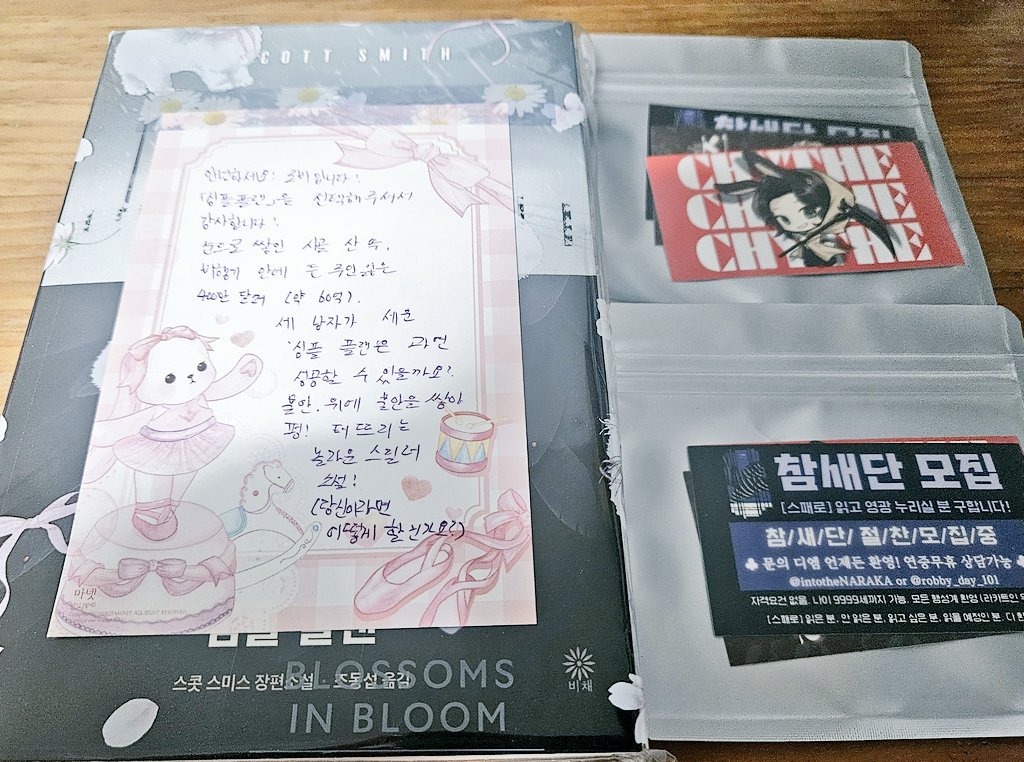 SCOTT SMITH
안녕하세요! 소비입니다!
「심플 플랜」을 선택해주셔서
감사합니다!
눈으로 쌓인 시골 산 속,
비행기 안에 든 주인 잃은
400만 달러 (약 60억).
세 남자가 세운
'심플 플랜'은 과연
성공할 수 있을까요?
불안. 위에 불안을 쌓아
펑! 터뜨리는
놀라운 스릴러
소설!
(당신이라면
어떻게 할 건가요?)
마넷
심플 플랜
스콧 스미스 장편소설 조동섭 옮김
BLOSSOMS
IN BLOOM
비채
참새단 모집
CHYTHE
CHYTHE
CHYTHE
참새단 모집
[스패로] 읽고 영광 누리실 분 구합니다!
참/새/단/절/찬/모/집/중
♣ 문의 디엠 언제든 환영! 연중무휴 상담가능 ♣
@intotheNARAKA or @robby_day_101
자격요건 없음. 나이 9999세까지 가능. 모든 행성계 환영 (라카트인
[스패로] 읽은 분, 안 읽은 분, 읽고 싶은 분, 읽을 예정인 분, 다 환